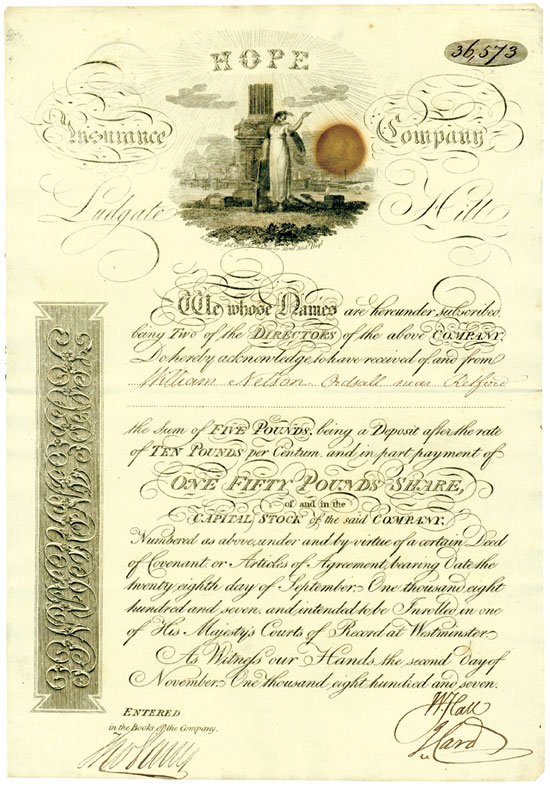 36,573
HOPE
Insurance Company
Ludgate Hill
We whose Names are hereunder subscribed,
being Two of the DIRECTORS of the above COMPANY,
Do hereby acknowledge, to have received of and from
William Nelson Ordsall near Retford
the Sum of FIVE POUNDS, being a Deposit after the rate
of TEN POUNDS per Centum, and in part payment of
ONE FIFTY POUNDS SHARE,
of and in the
CAPITAL STOCK of the said COMPANY,
Numbered as above, under and by virtue of a certain Deed
of Covenant, or Articles of Agreement, bearing Date the
twenty eighth day of September One thousand eight
hundred and seven, and intended to be Inrolled in one
of His Majesty's Courts of Record at Westminster.
As Witness our Hands, the second day of
November One thousand eight hundred and seven.
ENTERED
in the Books of the Company.
W Hall